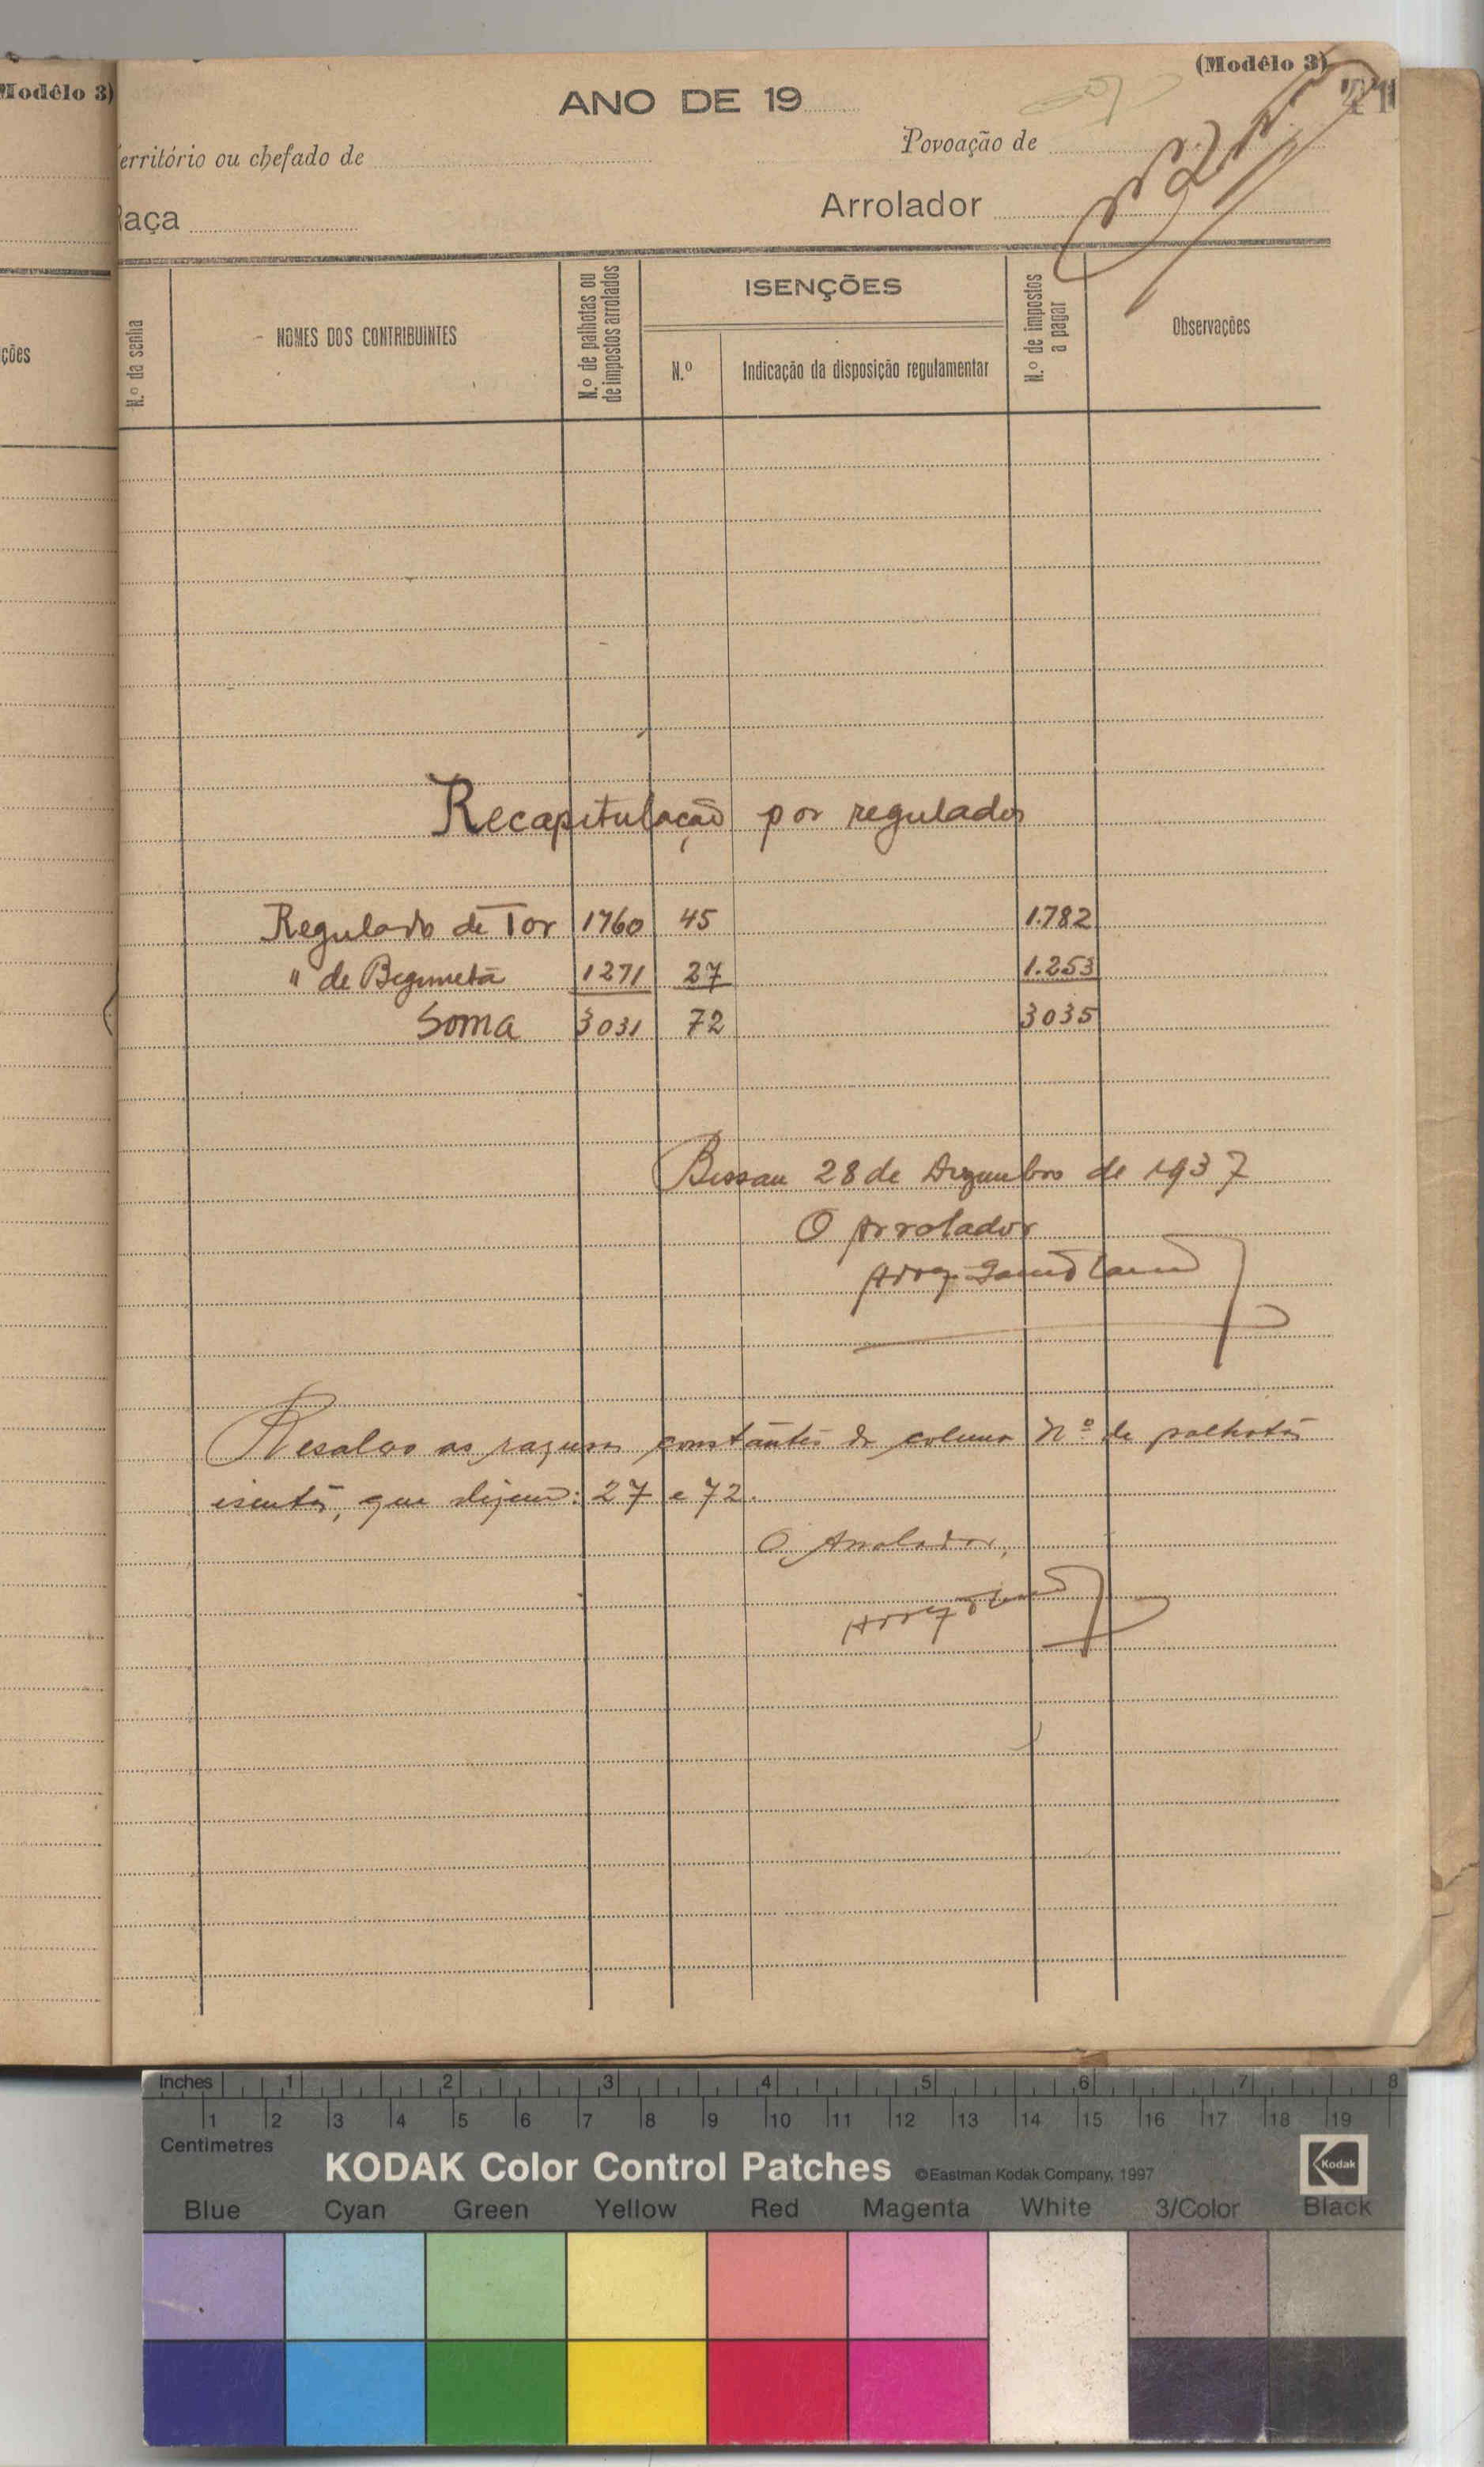 Modêlo 3)
(Modêlo 3)
71
ANO DE 19
erritório ou chefado de
Povoação de
Raça
Arrolador
ções
N.º da senha
NOMES DOS CONTRIBUINTES
N.º de palhotas ou
de impostos arrolados
ISENÇÕES
N.º
Indicação da disposição regulamentar
N.º de impostos
a pagar
Observações
Recapitulação por regulados
Regulado de Tor 1760 45 1.782
" de Bigimetã 1271 27 1.253
Soma 3031 72 3035
Bissau 28 de Dezembro de 1937
O Arrolador
Resalvo as razuras constantes da coluna Nº de palhotas
isentas, que dizem: 27 e 72.
O Arrolador,
Inches 1 2 3 4 5 6 7 8
1 2 3 4 5 6 7 8 9 10 11 12 13 14 15 16 17 18 19
Centimetres
KODAK Color Control Patches ©Eastman Kodak Company, 1997 Kodak
Blue Cyan Green Yellow Red Magenta White 3/Color Black